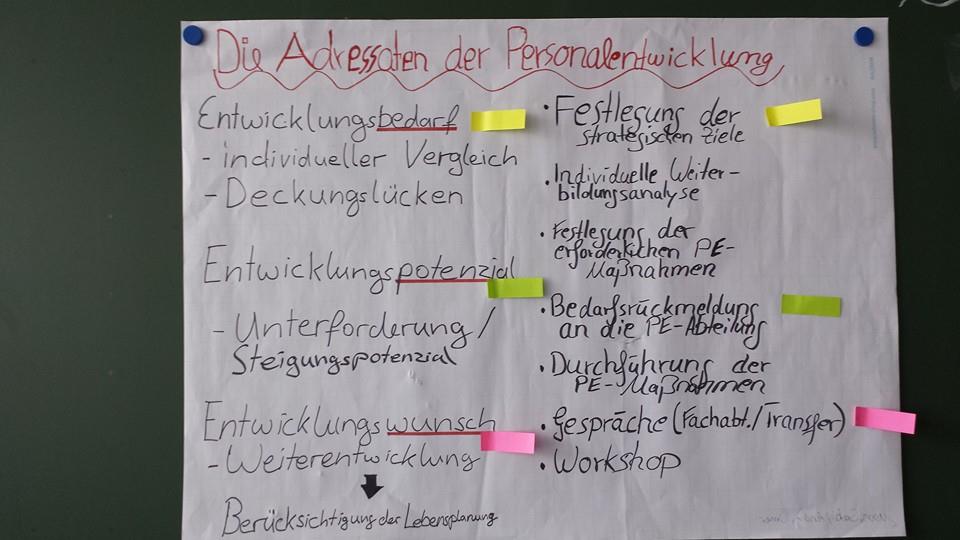 Die Adressaten der Personalentwicklung
Entwicklungsbedarf
- individueller Vergleich
- Deckungslücken
Entwicklungspotenzial
- Unterforderung/
Steigungspotenzial
Entwicklungswunsch
- Weiterentwicklung
Berücksichtigung der Lebensplanung
• Festlegung der
strategischen Ziele
• Individuelle Weiter-
bildungsanalyse
• Festlegung der
erforderlichen PE-
Maßnahmen
• Bedarfsrückmeldung
an die PE-Abteilung
• Durchführung der
PE-Maßnahmen
• Gespräche (Fachabt./Transfer)
• Workshop